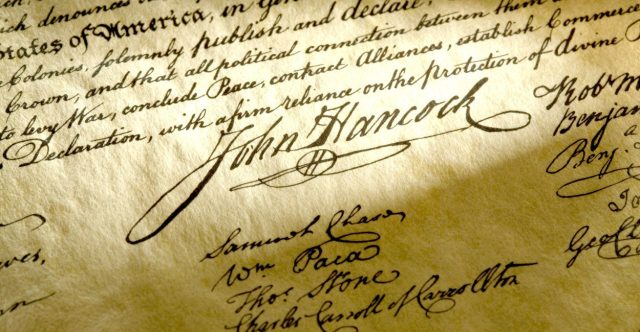 which denounces
States of America, in
Colonies, solemnly publish and declare,
Crown, and that all political connection between them
to levy War, conclude Peace, contract Alliances, establish Commerce
Declaration, with a firm reliance on the protection of divine
John Hancock
Samuel Chase
Wm Paca
Thos. Stone
Charles Carroll of Carrollton
Robt M
Benja
Benj.
Ja
Geo